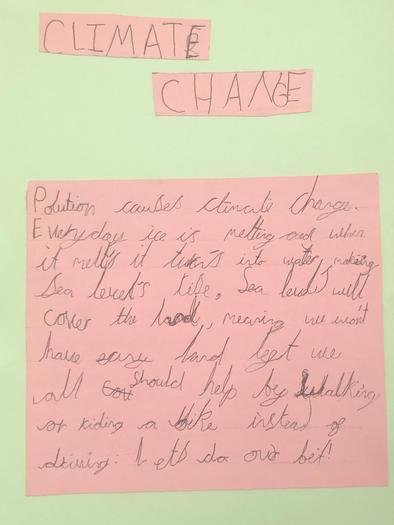 CLIMATE
CHANGE
Polution causes climate change.
Everyday ice is melting and when
it melts it turn's into water, making
Sea level's rise, Sea levels will
cover the land, meaning we won't
have land left we
all should help by walking
or riding a bike instead of
driving. Let's do our bit!